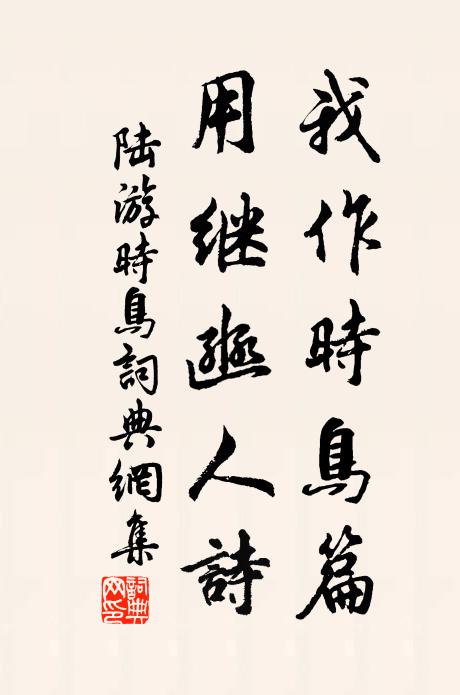 我作時鳥篇
用继豳人詩
陸游時鳥詞典網集
詞典网印